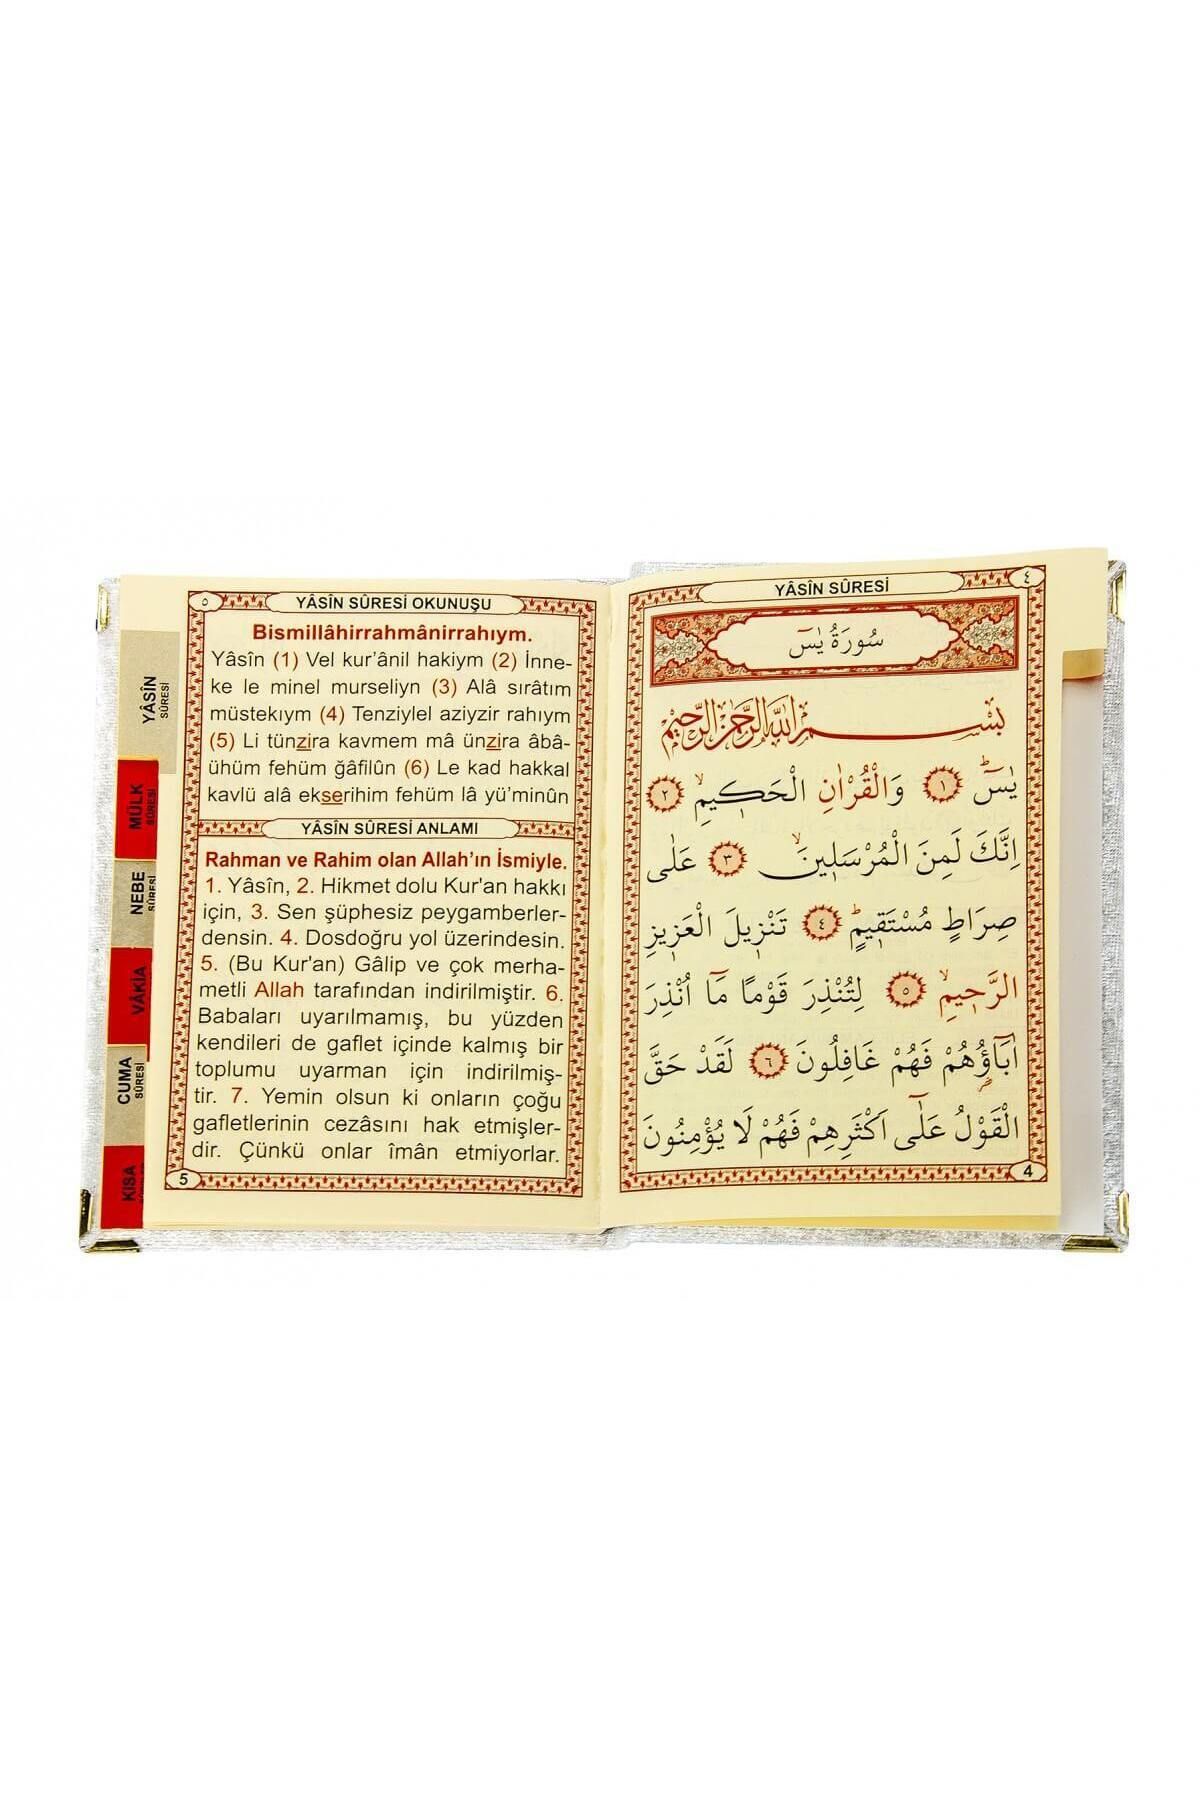 ٥
YÂSÎN SÛRESİ OKUNUŞU
Bismillâhirrahmânirrahıym.
Yâsîn (1) Vel kur'ânil hakiym (2) İnne-
ke le minel murseliyn (3) Alâ sırâtım
müstekıym (4) Tenziylel aziyzir rahıym
(5) Li tünzira kavmem mâ ünzira âbâ-
ühüm fehüm ğâfilûn (6) Le kad hakkal
kavlü alâ ekserihim fehüm lâ yü'minûn
YÂSÎN SÛRESİ ANLAMI
Rahman ve Rahim olan Allah'ın İsmiyle.
1. Yâsîn, 2. Hikmet dolu Kur'an hakkı
için, 3. Sen şüphesiz peygamberler-
densin. 4. Dosdoğru yol üzerindesin.
5. (Bu Kur'an) Gâlip ve çok merha-
metli Allah tarafından indirilmiştir. 6.
Babaları uyarılmamış, bu yüzden
kendileri de gaflet içinde kalmış bir
toplumu uyarman için indirilmiş-
tir. 7. Yemin olsun ki onların çoğu
gafletlerinin cezâsını hak etmişler-
dir. Çünkü onlar îmân etmiyorlar.
5
YÂSÎN
SÛRESİ
MÜLK
SÛRESİ
NEBE
SÛRESİ
VÂKIA
CUMA
SÛRESİ
KISA
٤
YÂSÎN SÛRESİ
سُورَةُ يٰسٓ
بِسْمِ اللّٰهِ الرَّحْمٰنِ الرَّحِيمِ
يٰسٓۜ ﴿١﴾ وَالْقُرْاٰنِ الْحَك۪يمِۙ ﴿٢﴾
اِنَّكَ لَمِنَ الْمُرْسَل۪ينَۙ ﴿٣﴾ عَلٰى
صِرَاطٍ مُسْتَق۪يمٍۜ ﴿٤﴾ تَنْز۪يلَ الْعَز۪يزِ
الرَّح۪يمِۙ ﴿٥﴾ لِتُنْذِرَ قَوْمًا مَٓا اُنْذِرَ
اٰبَٓاؤُ۬هُمْ فَهُمْ غَافِلُونَ ﴿٦﴾ لَقَدْ حَقَّ
الْقَوْلُ عَلٰٓى اَكْثَرِهِمْ فَهُمْ لَا يُؤْمِنُونَ
4